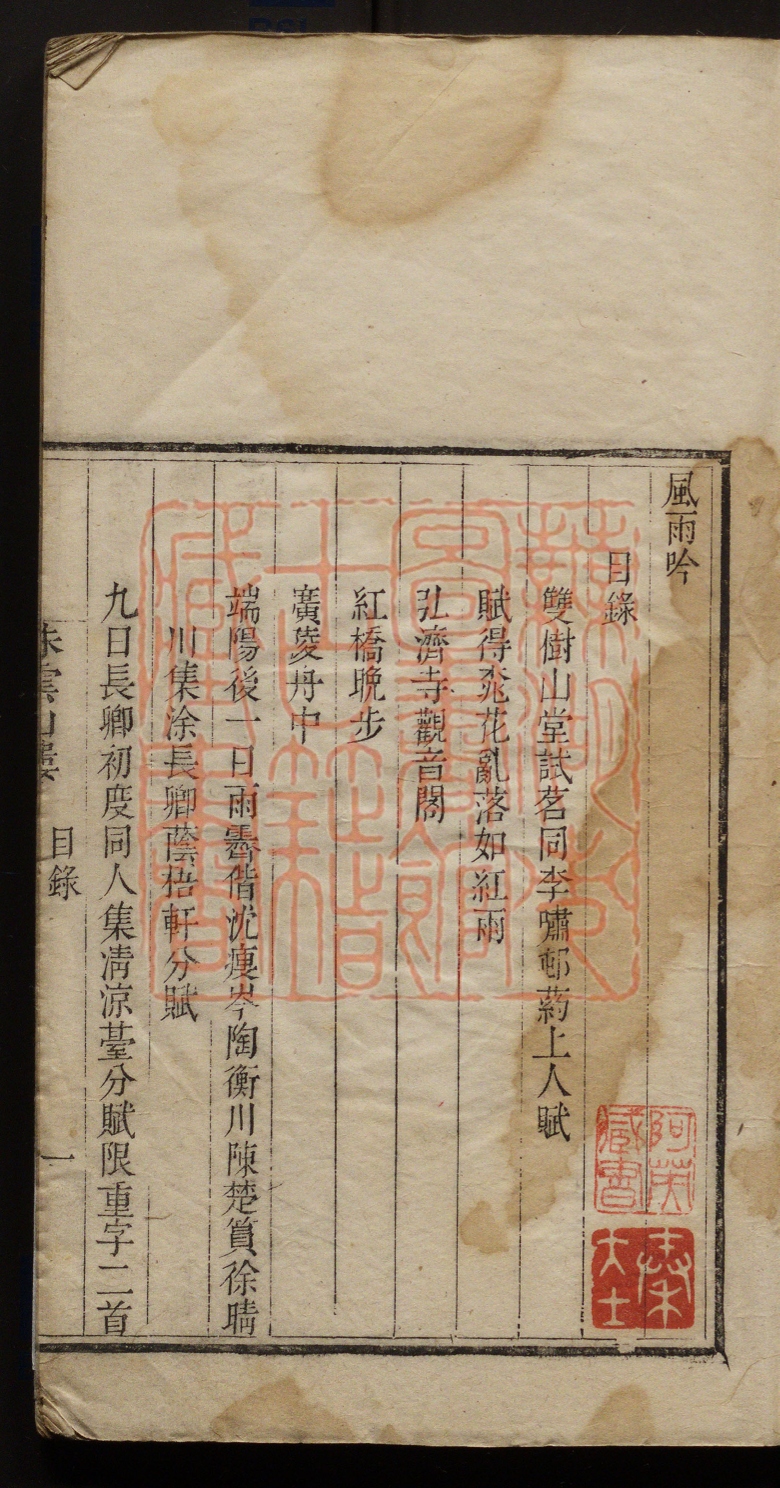 風雨吟
目錄
雙樹山堂試茗同李嘯邨葯上人賦
賦得桃花亂落如紅雨
弘濟寺觀音閣
紅橋晚步
廣陵舟中
端陽後一日雨霽偕沈瘦岑陶衡川陳楚篔徐晴
川集涂長卿蔭梧軒分賦
九日長卿初度同人集清涼臺分賦限重字二首
雲山 目錄 一
阿英
藏書
秦
大士